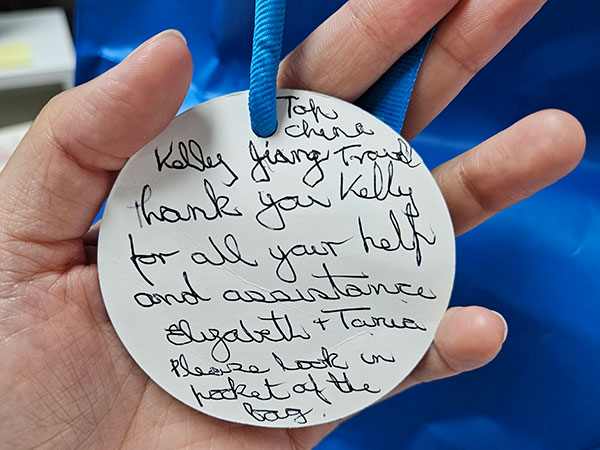 Top
China
Kelley Jiang Travel
Thank you Kelly
for all your help
and assistance
Elizabeth +
Please look in
pocket of the
bag.